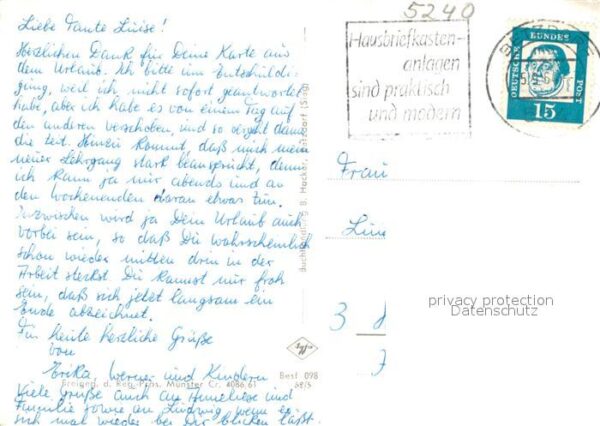 Liebe Tante Luise!
Herzlichen Dank für Deine Karte aus
dem Urlaub. Ich bitte um Entschuldi-
gung, weil ich nicht sofort geantwortet
habe, aber ich habe es von einem Tag auf
den anderen verschoben und so vergeht dann
die Zeit. Hinzu kommt, daß mich mein
neuer Lehrgang stark beansprucht, denn
ich kann ja nur abends und an
den Wochenenden daran etwas tun.
Inzwischen wird ja Dein Urlaub auch
vorbei sein, so daß Du wahrscheinlich
schon wieder mitten drin in der
Arbeit steckst. Du kannst nur froh
sein, daß sich jetzt langsam ein
Ende abzeichnet.
Für heute herzliche Grüße
von
Erika, Werner und Kindern
Viele Grüße auch an Anneliese und
Familie sowie an Ludwig, wenn er
sich mal wieder bei Dir blicken läßt.
Buchhandlung B. Hacker, (Sieg)
Agfa
Best 098
d. Münster Cr. 4086.61
5240
Hausbriefkasten-
anlagen
sind praktisch
und modern
DEUTSCHE BUNDES POST
15
Frau
3
privacy protection
Datenschutz